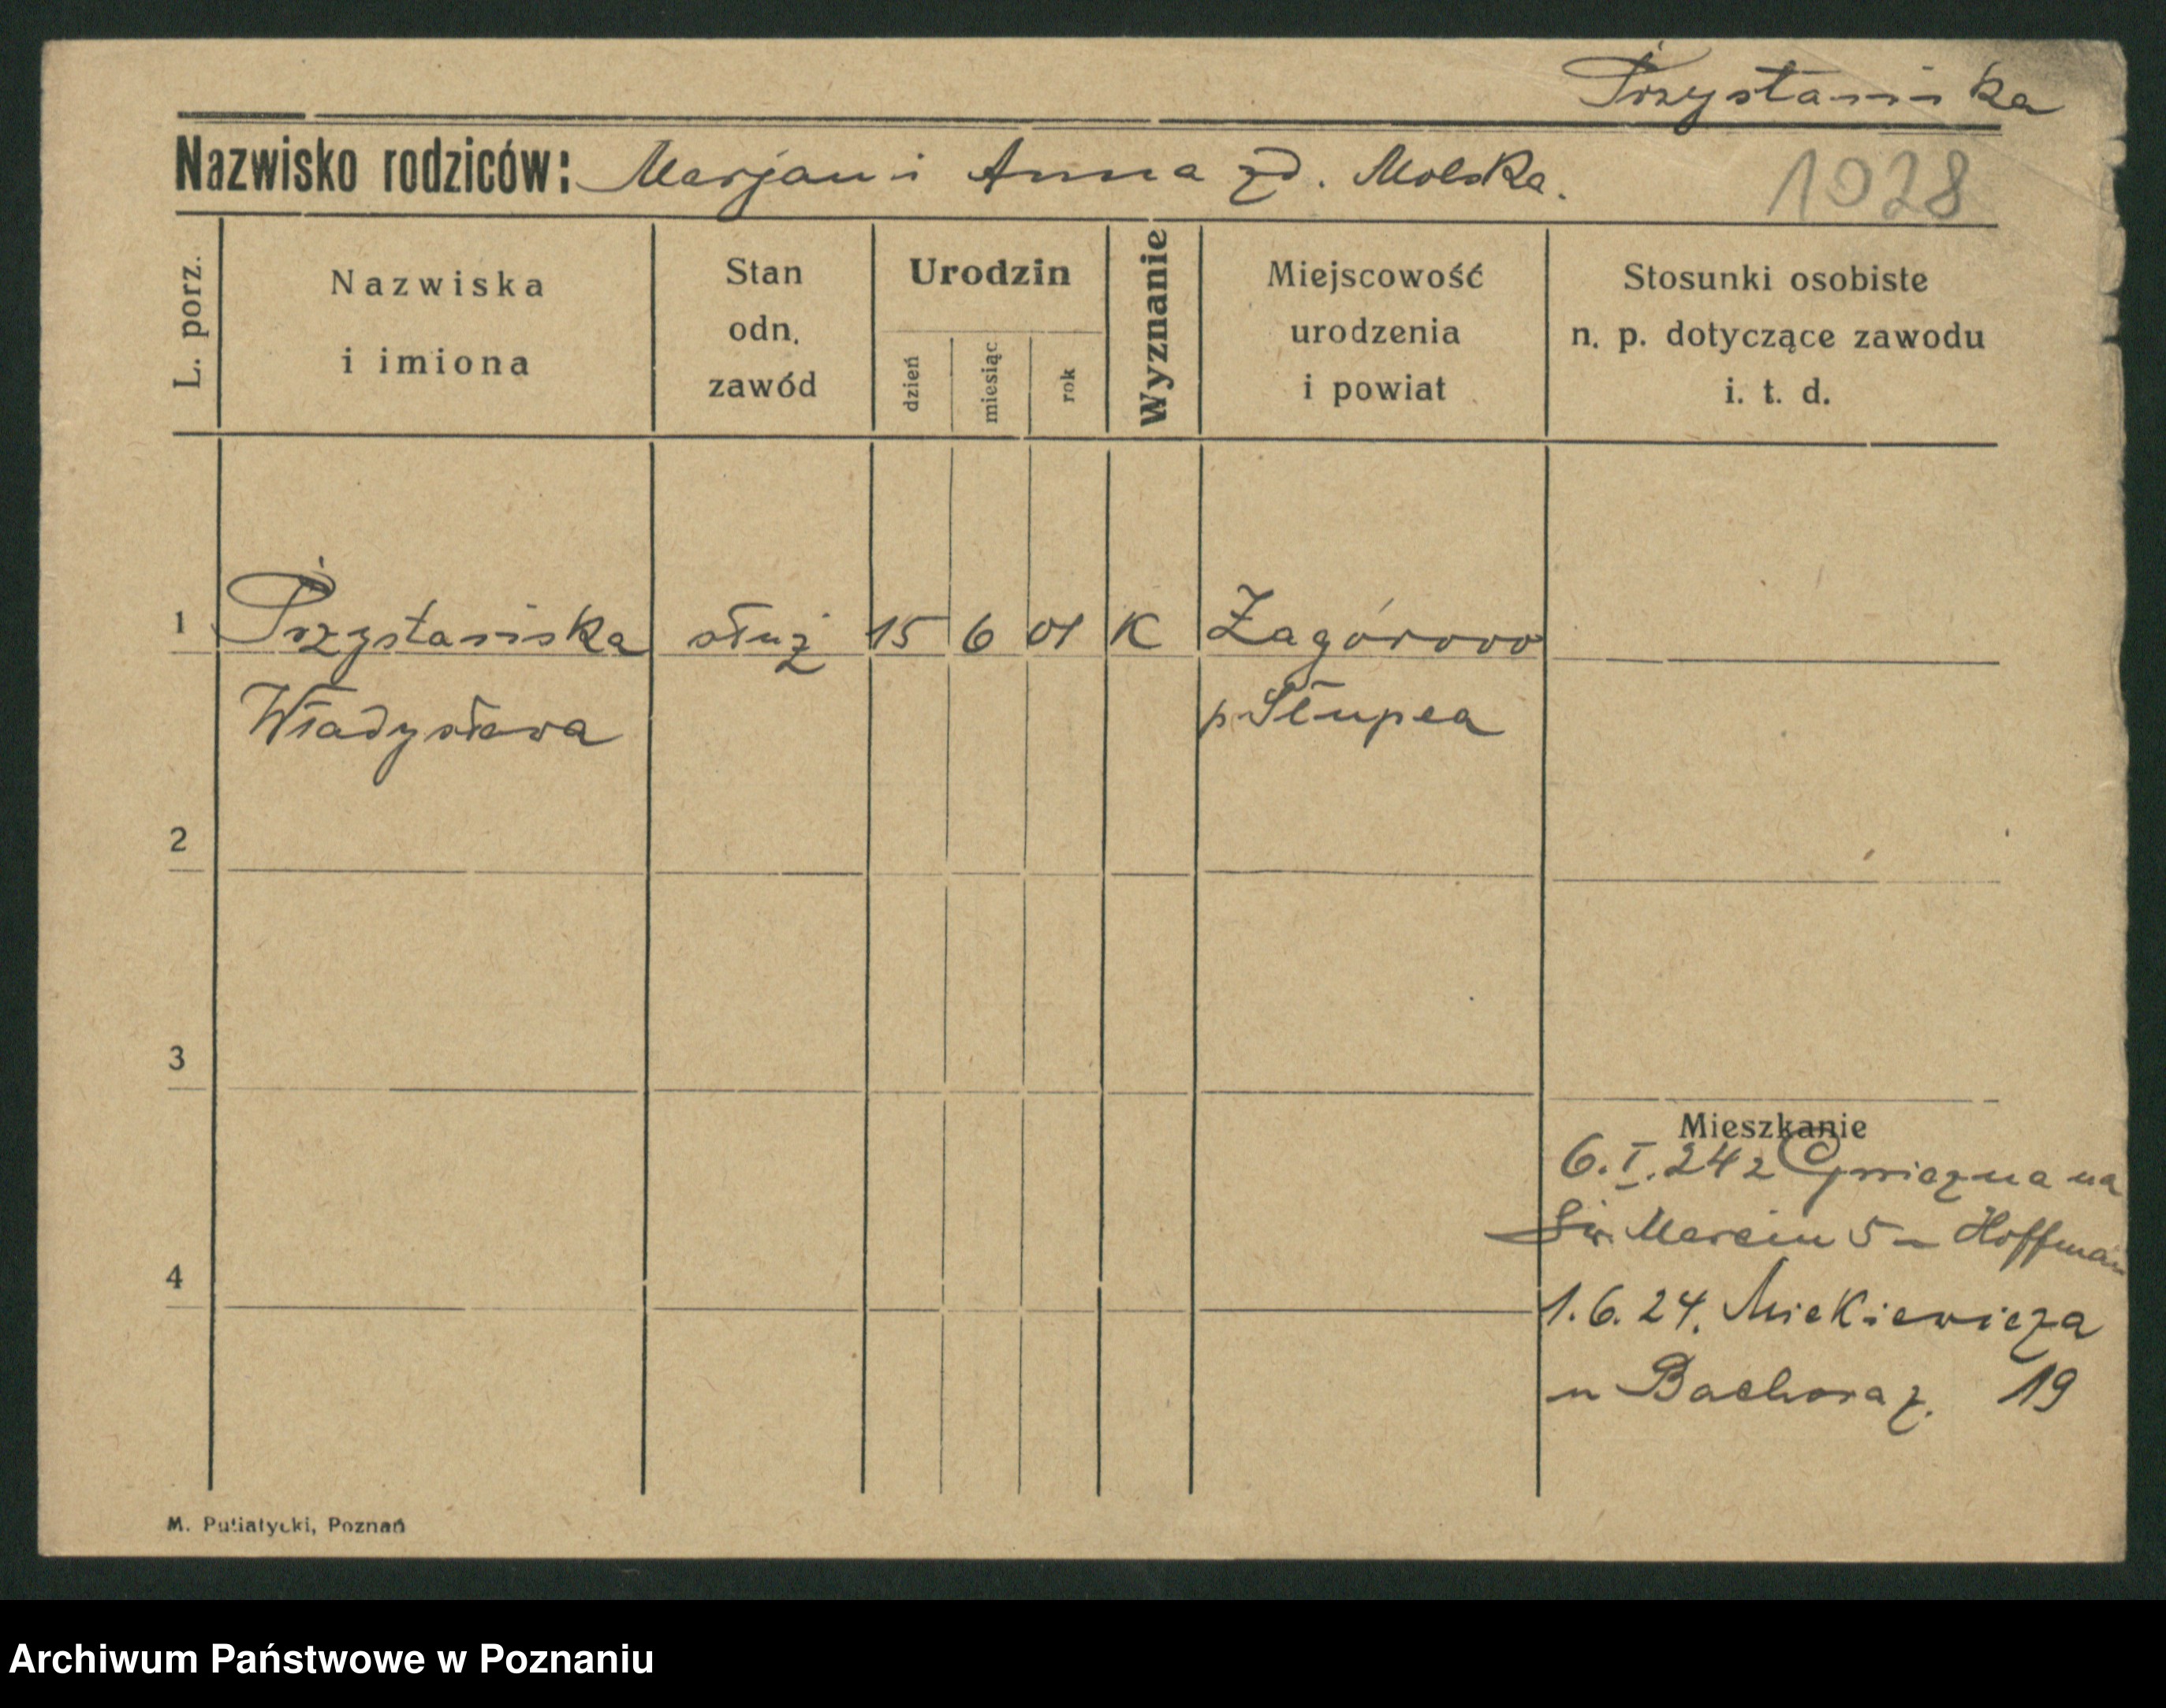 Przystańska
Nazwisko rodziców: Marjan i Anna zd. Molska.
1028
L. porz.
Nazwiska
i imiona
Stan
odn.
zawód
Urodzin
dzień
miesiąc
rok
Wyznanie
Miejscowość
urodzenia
i powiat
Stosunki osobiste
n. p. dotyczące zawodu
i. t. d.
1 Przystańska służ 15 6 01 K Zagórowo
Władysława p. Słupca
2
3
Mieszkanie
6.I.24 z Gniezna na
Św. Marcin 5 – Hoffman
4
1.6.24. Mickiewicza
u 19
M. Putiatycki, Poznań
Archiwum Państwowe w Poznaniu